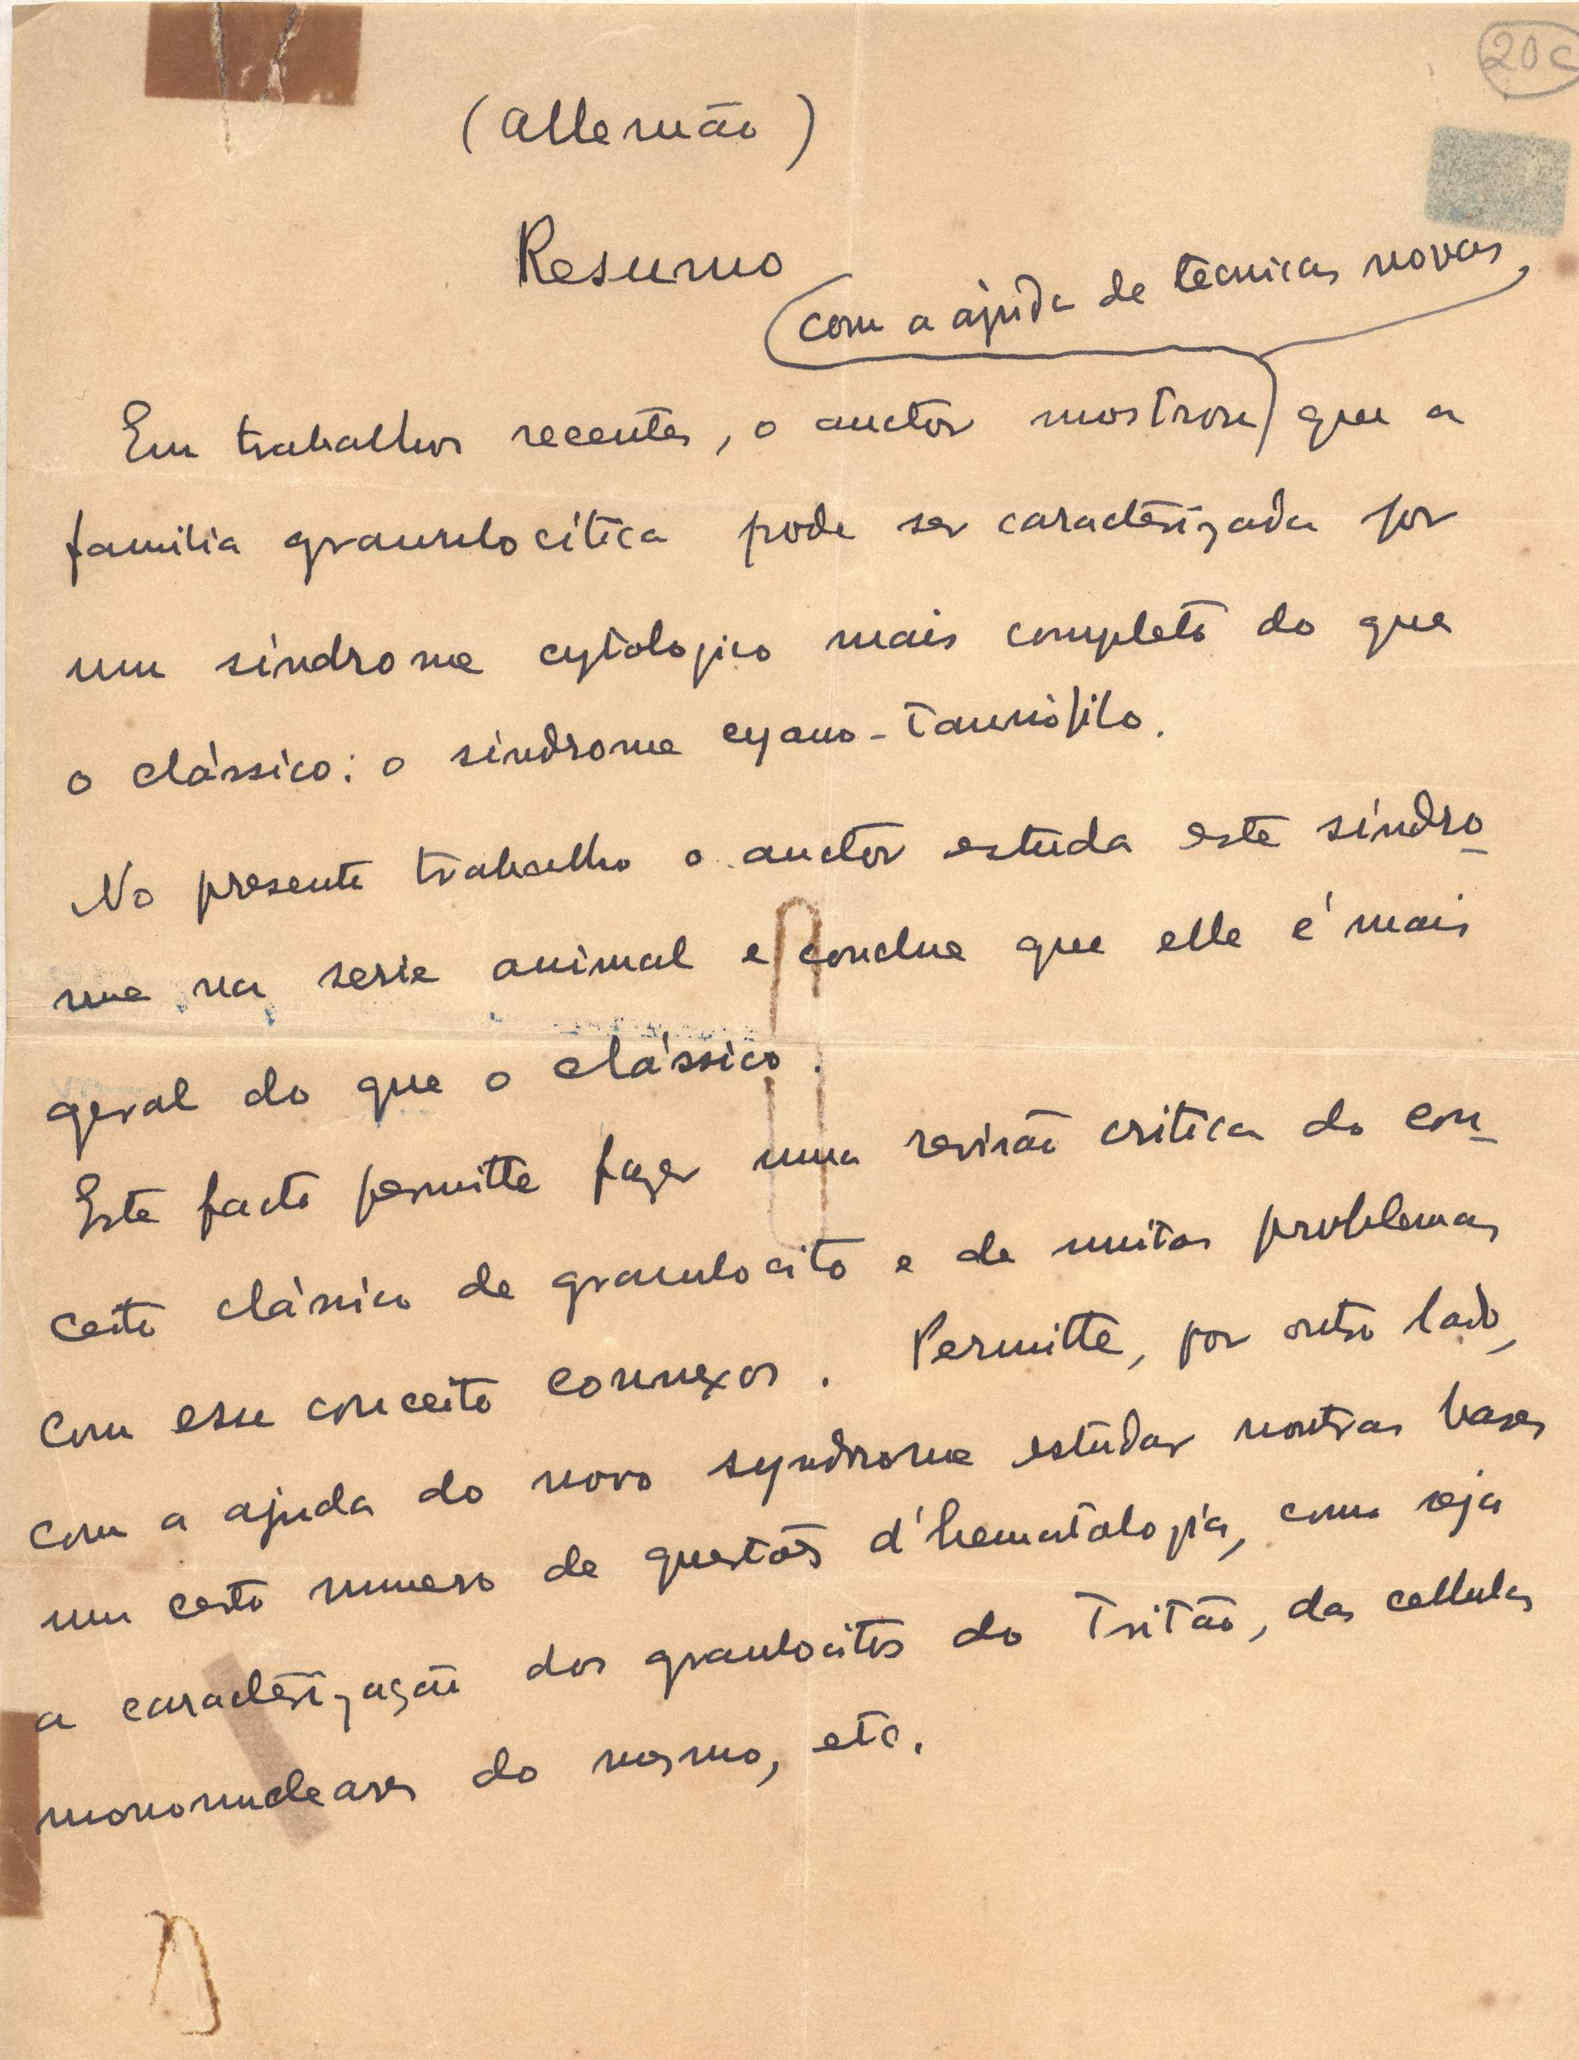 20C
(Allemão)
Resumo
com a ajuda de técnicas novas,
Em trabalhos recentes, o auctor mostrou que a
familia granulocítica pode ser caracterizada por
um síndrome cytologico mais completo do que
o clássico: o síndrome cyano-tannófilo.
No presente trabalho o auctor estuda este síndro-
me na serie animal e conclue que elle é mais
geral do que o clássico.
Este facto permitte fazer uma revisão critica do con-
ceito clássico de granulocito e de muitos problemas
com esse conceito connexos. Permitte, por outro lado,
com a ajuda do novo syndrome estudar noutras bases
um certo numero de questões d'hematologia, como seja
a caracterização dos granulocitos do Tritão, das cellulas
mononucleares do mesmo, etc.